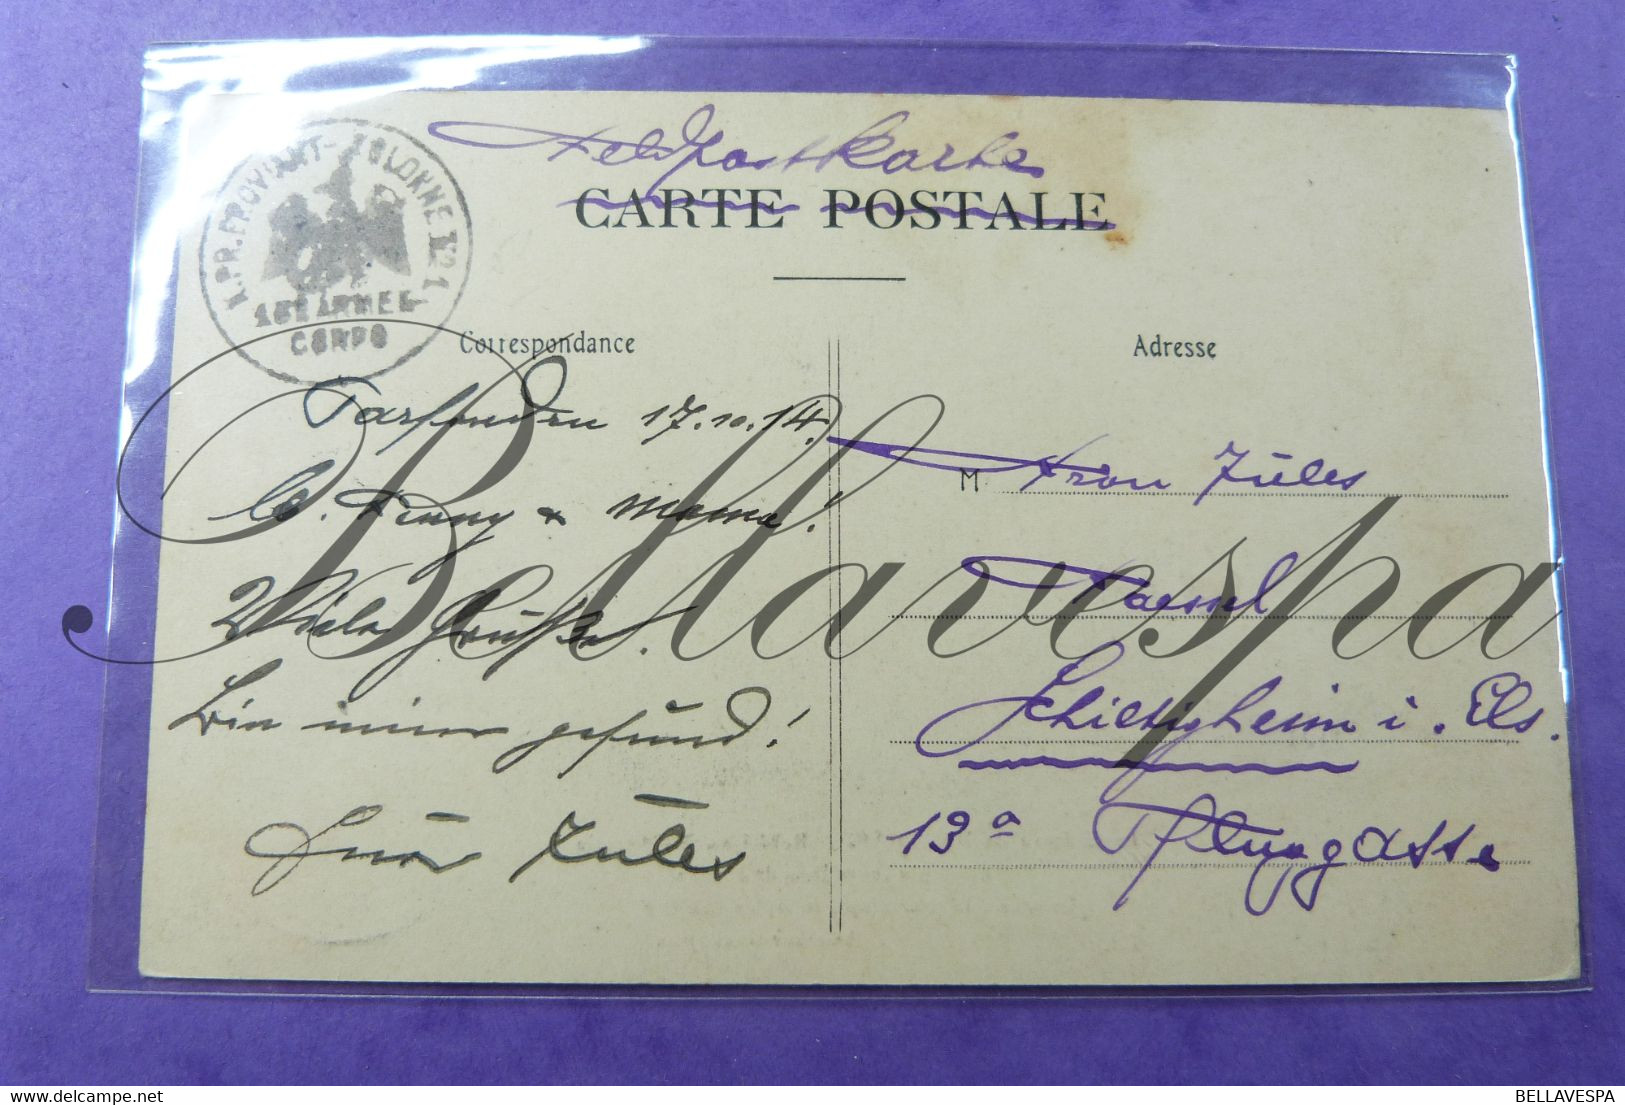 Feldpostkarte
CARTE POSTALE
K.PR.PROVIANT-KOLONNE.No 1
ARMEE-
CORPS
Correspondance
Adresse
17.10.14.
L. Fanny & Mama!
Viele Grüsse.
Bin immer gesund!
Euer Jules
M Frau Jules
Schiltigheim i. Els.
13a Pfluggasse
Bellavespa
BELLAVESPA